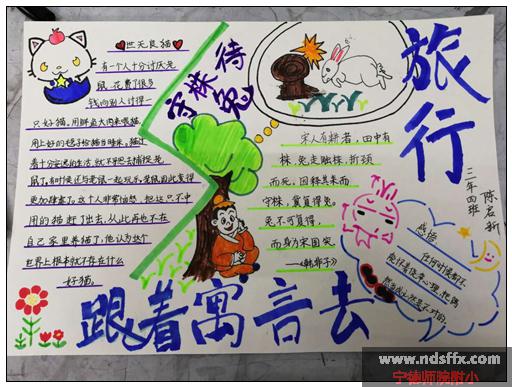 世无良猫
有一个人十分讨厌老
鼠,花费了很多
钱向别人讨得一
只好猫。用鲜鱼大肉来喂猫,
用上好的毯子给猫当睡床。猫过
着十分安逸的生活,就不肯去捕捉老
鼠了,有时候还与老鼠一起玩乐,老鼠因此变得
更加肆虐了。这个人非常恼怒,把这只不中
用的猫赶了出去,从此再也不在
自己家里养猫了,他认为这个
世界上根本就不存在什么
好猫。
守株待兔
宋人有耕者,田中有
株,兔走触株,折颈
而死。因释其耒而
守株,冀复得兔。
兔不可复得,
而身为宋国笑。
——《韩非子》
旅行
三年四班
陈启新
感悟
任何时候都不
能怀着侥幸心理,把偶
然当成必然是不对的。
跟着寓言去
www.ndsffx.com
宁德师院附小